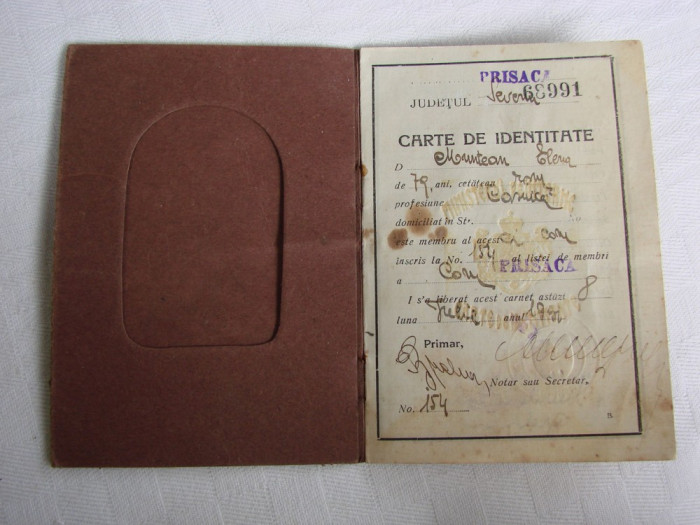 PRISACA
JUDEȚUL Severin 63991
CARTE DE IDENTITATE
D Muntean Elena
de 79, ani, cetățean rom
profesiune Casnică
domiciliat în Str. No
este membru al acestei com
înscris la No. 154 al listei de membri
a Com PRISACA
I s'a liberat acest carnet astăzi 8
luna Iulie anul
Primar,
Notar sau Secretar,
No. 154